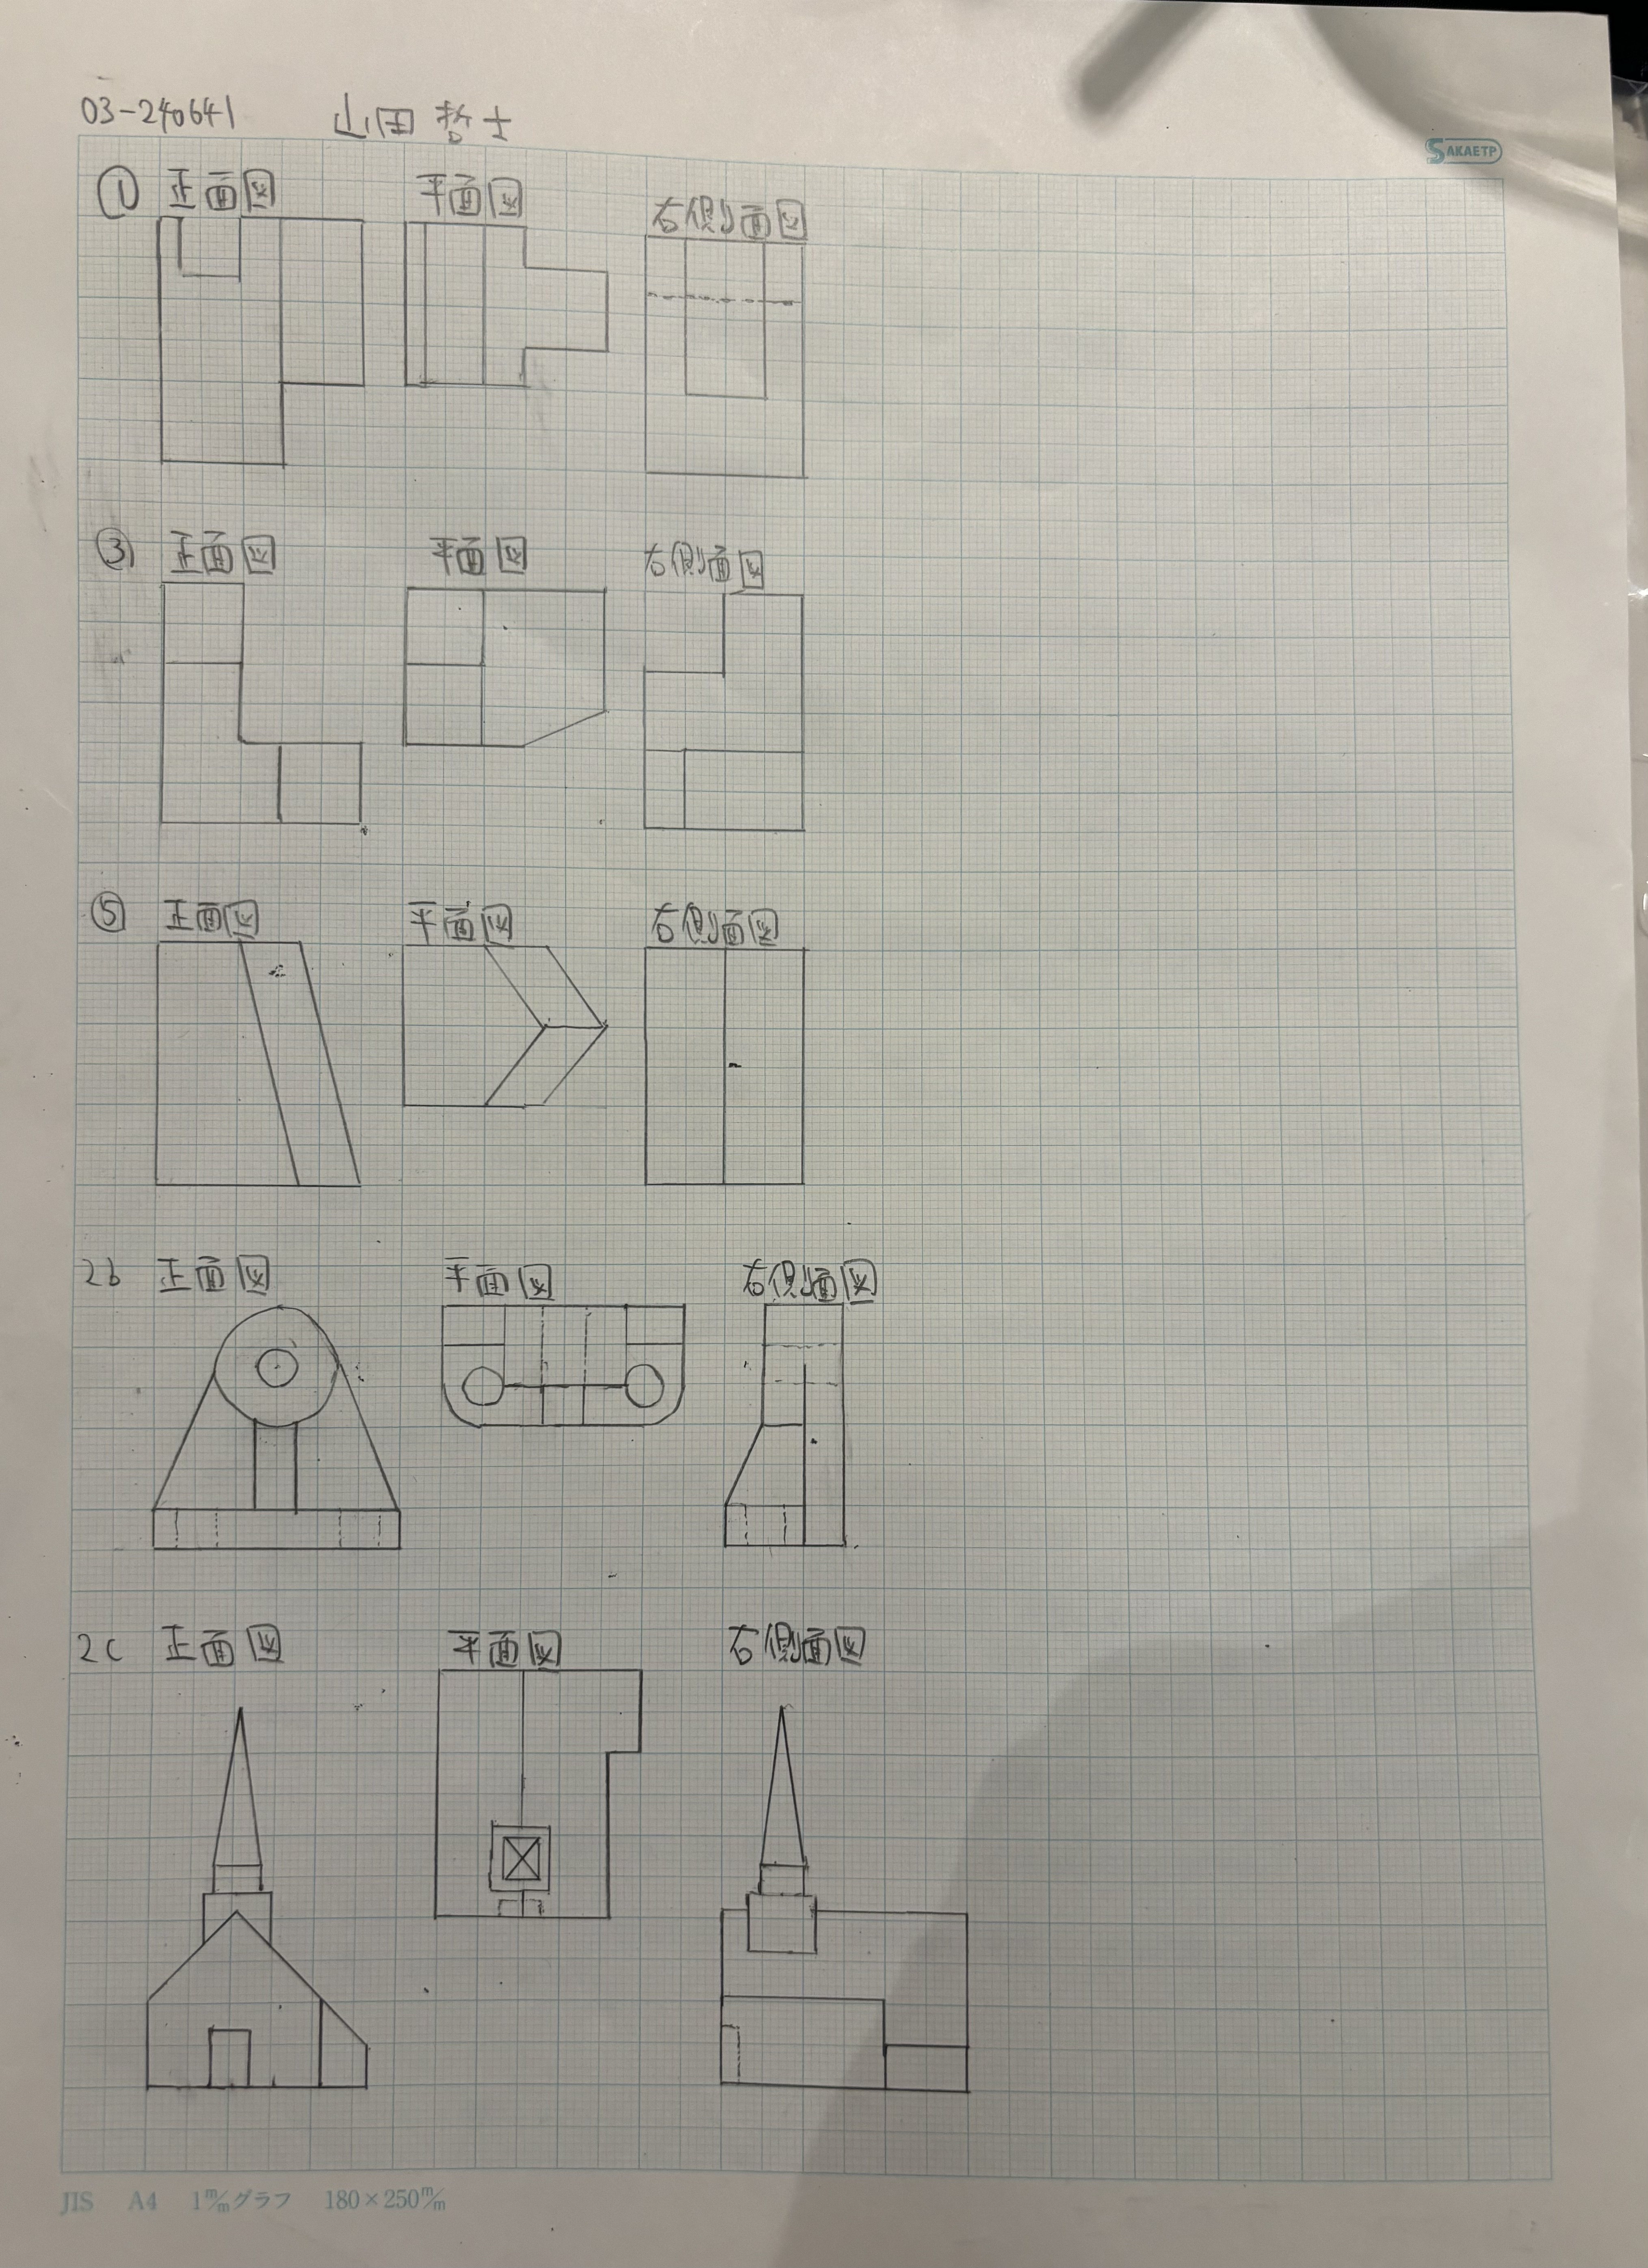 03-240641 山田 哲士
SAKAETP
① 正面図 平面図 右側面図
③ 正面図 平面図 右側面図
⑤ 正面図 平面図 右側面図
2b 正面図 平面図 右側面図
2c 正面図 平面図 右側面図
JIS A4 1m/mグラフ 180×250m/m